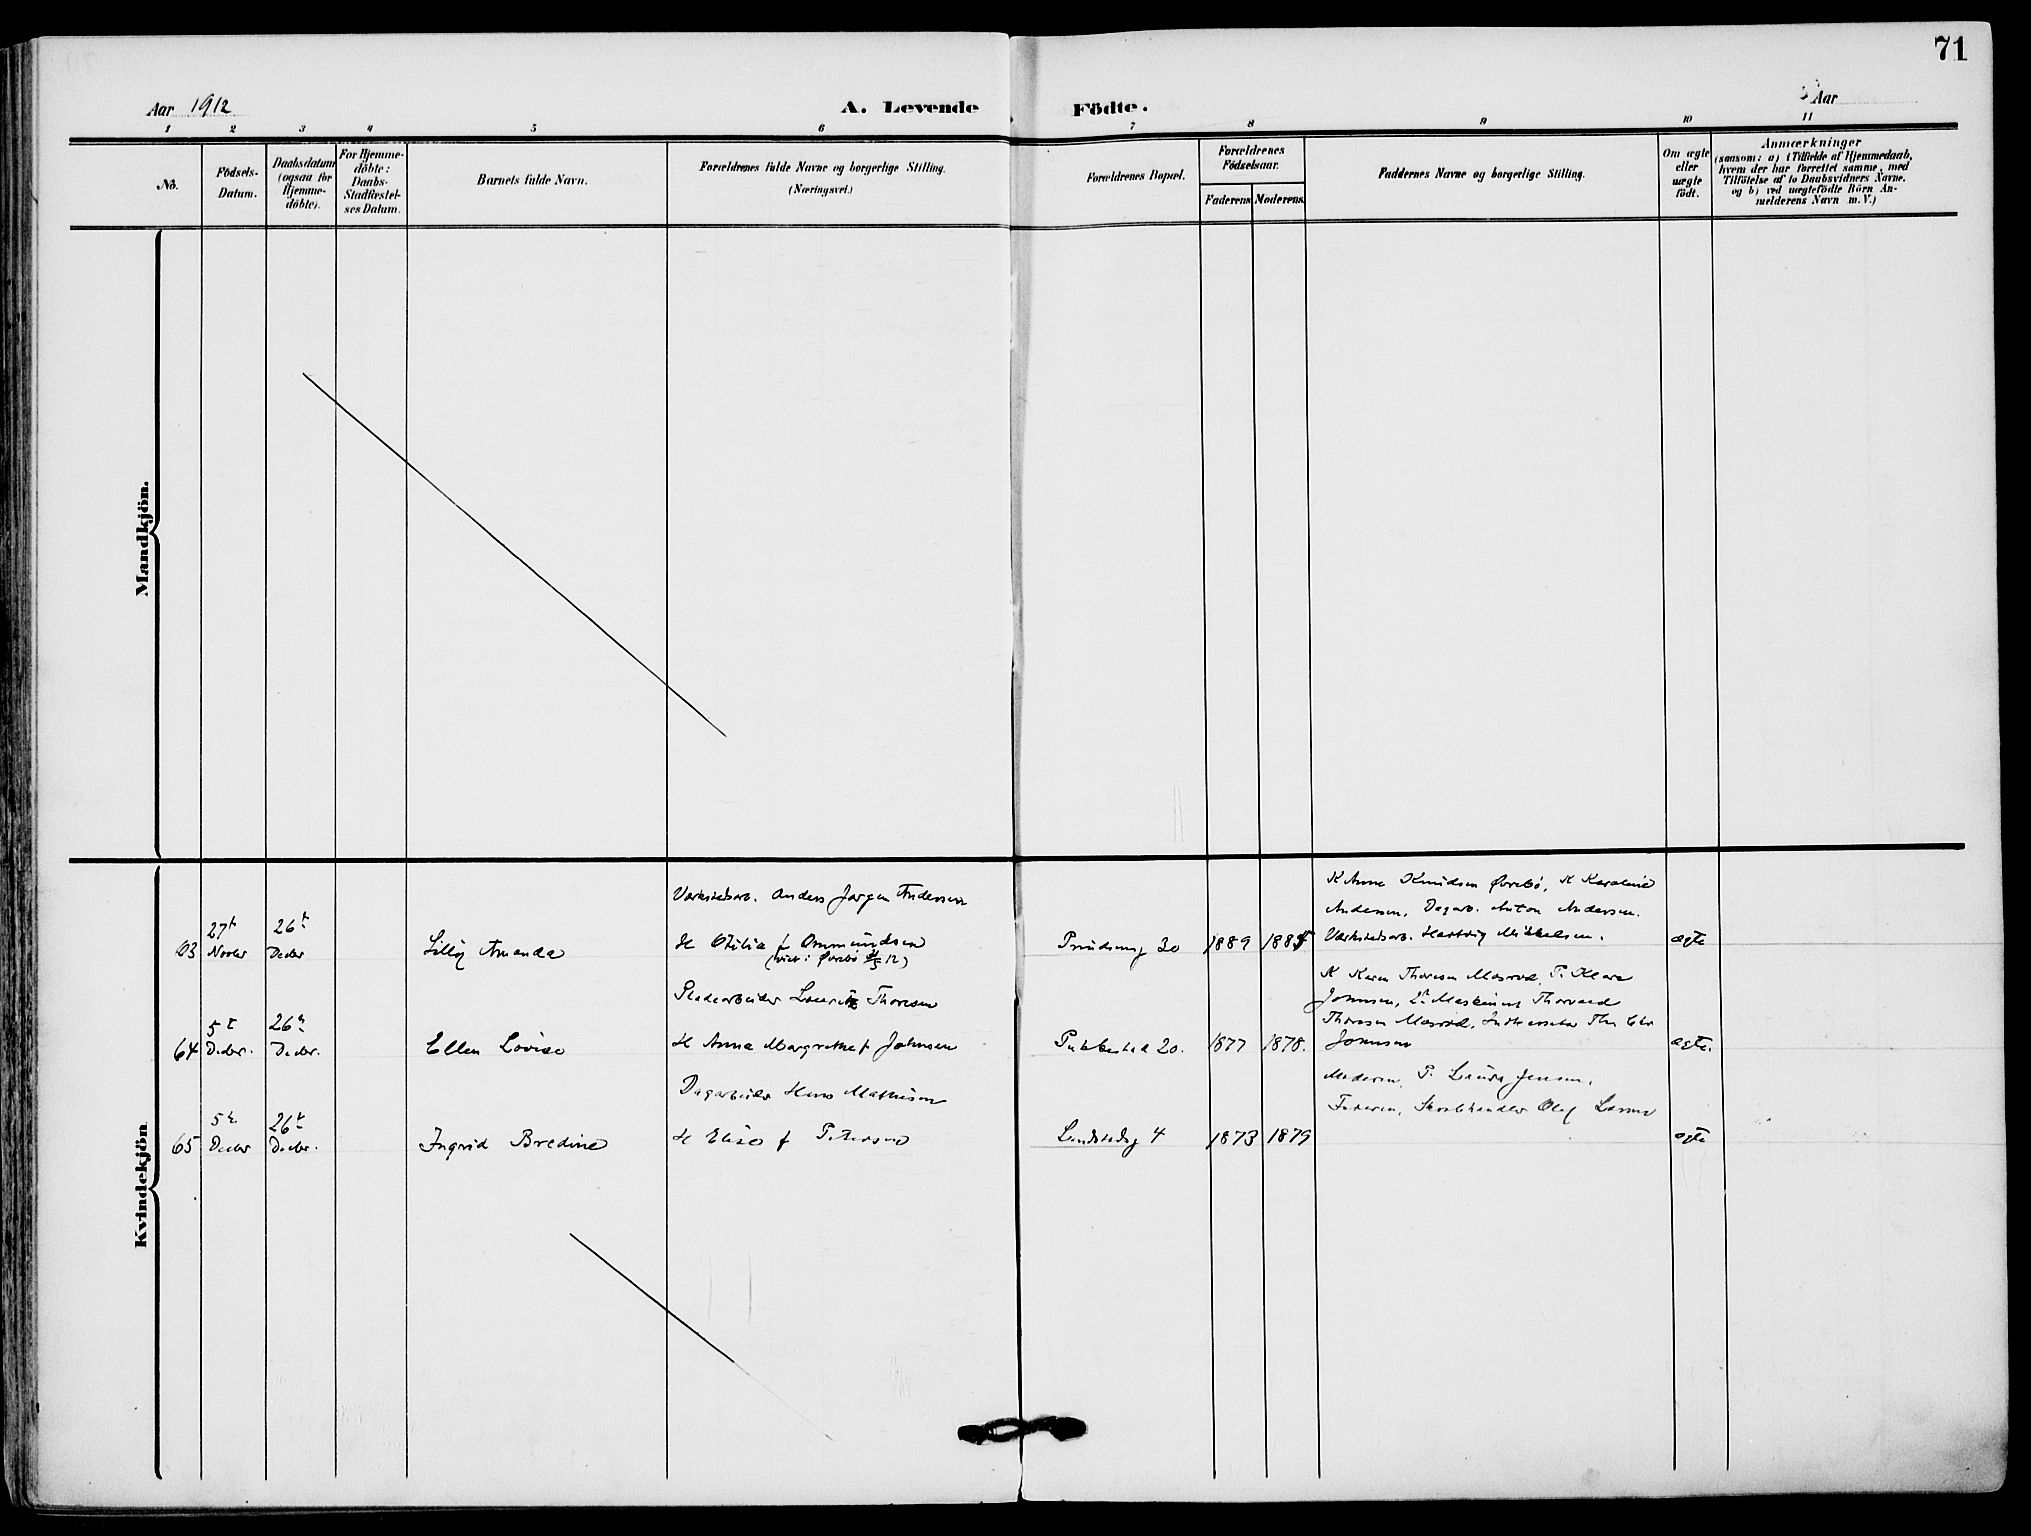 71
Aar 1912
A. Levende Födte.
Aar
1 2 3 4 5 6 7 8 9 10 11
No.
Födsels-
Datum.
Daabsdatum
(ogsaa for
Hjemme-
döbte).
For Hjemme-
döbte:
Daabs-
Stadfæstel-
ses Datum.
Barnets fulde Navn.
Forældrenes fulde Navne og borgerlige Stilling.
(Næringsvei.)
Forældrenes Bopæl.
Forældrenes
Födselsaar.
Faderens Moderens
Faddernes Navne og borgerlige Stilling.
Om ægte
eller
uægte
født.
Anmærkninger
(saasom: a) i Tilfælde af Hjemmedaab,
hvem der har forrettet samme, med
Tilföielse af to Daabsvidners Navne.
og b) ved uægtefödte Börn An-
melderens Navn m. V.)
Mandkjön.
Kvindekjön
63
27
Novbr
26
Decbr
Lilly Amanda
Værkstedsarb. Anders Jørgen Andersen
H Otilia f Ommundsen
(viet i Øvrebø 12)
30
1889
K Anna Knudsen Øvrebø, K Karoline
Andersen, Dagarb. Anton Andersen.
Værkstedsarb. Hartvig Mikkelsen.
ægte
64
5
Decbr.
26
Decbr.
Ellen Lovise
Pladearbeider Lauritz Thoresen
H Anna Margrethe f Johnsen
Pukkestad 20.
1877 1878.
K Karen Thoresen Masrød, P. Klara
Johnsen, Maskinist Thorvald
Thoresen Masrød, Chr
Johnsen
ægte.
65
5
Decbr
26
Decbr.
Ingrid Bredine
Dagarbeider Hans Mathisen
H Elise f Petersen
Landstadsg 4
1873 1879
Moderen, P. Laura Jensen,
Faderen, Skotøihandler Olaf Larsen
ægte